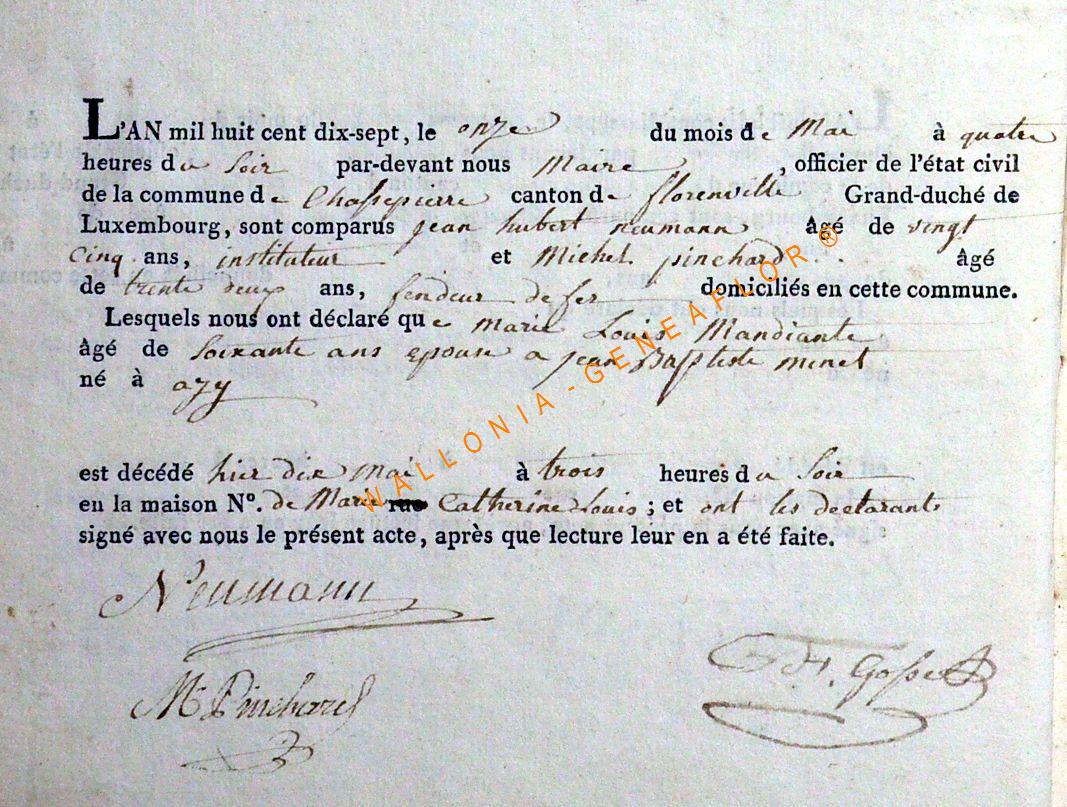 L'AN mil huit cent dix-sept, le onze du mois de Mai à quatre
heures du Soir par-devant nous Maire, officier de l'état civil
de la commune de Chassepierre canton de florenville Grand-duché de
Luxembourg, sont comparus jean hubert neumann âgé de vingt
cinq ans, instituteur et Michel pinchard... âgé
de trente deux ans, fendeur de fer domiciliés en cette commune.
Lesquels nous ont déclaré que marie Louis Mandiante
âgé de Soixante ans epouse a jean Baptiste minet
né à azy
est décédé hier dix mai à trois heures du Soir
en la maison N°. de Marie rue Catherine Louis; et ont les declarants
signé avec nous le présent acte, après que lecture leur en a été faite.
WALLONIA - GENEAFLOR ®
Neumann
H. Gosset
M Pinchard